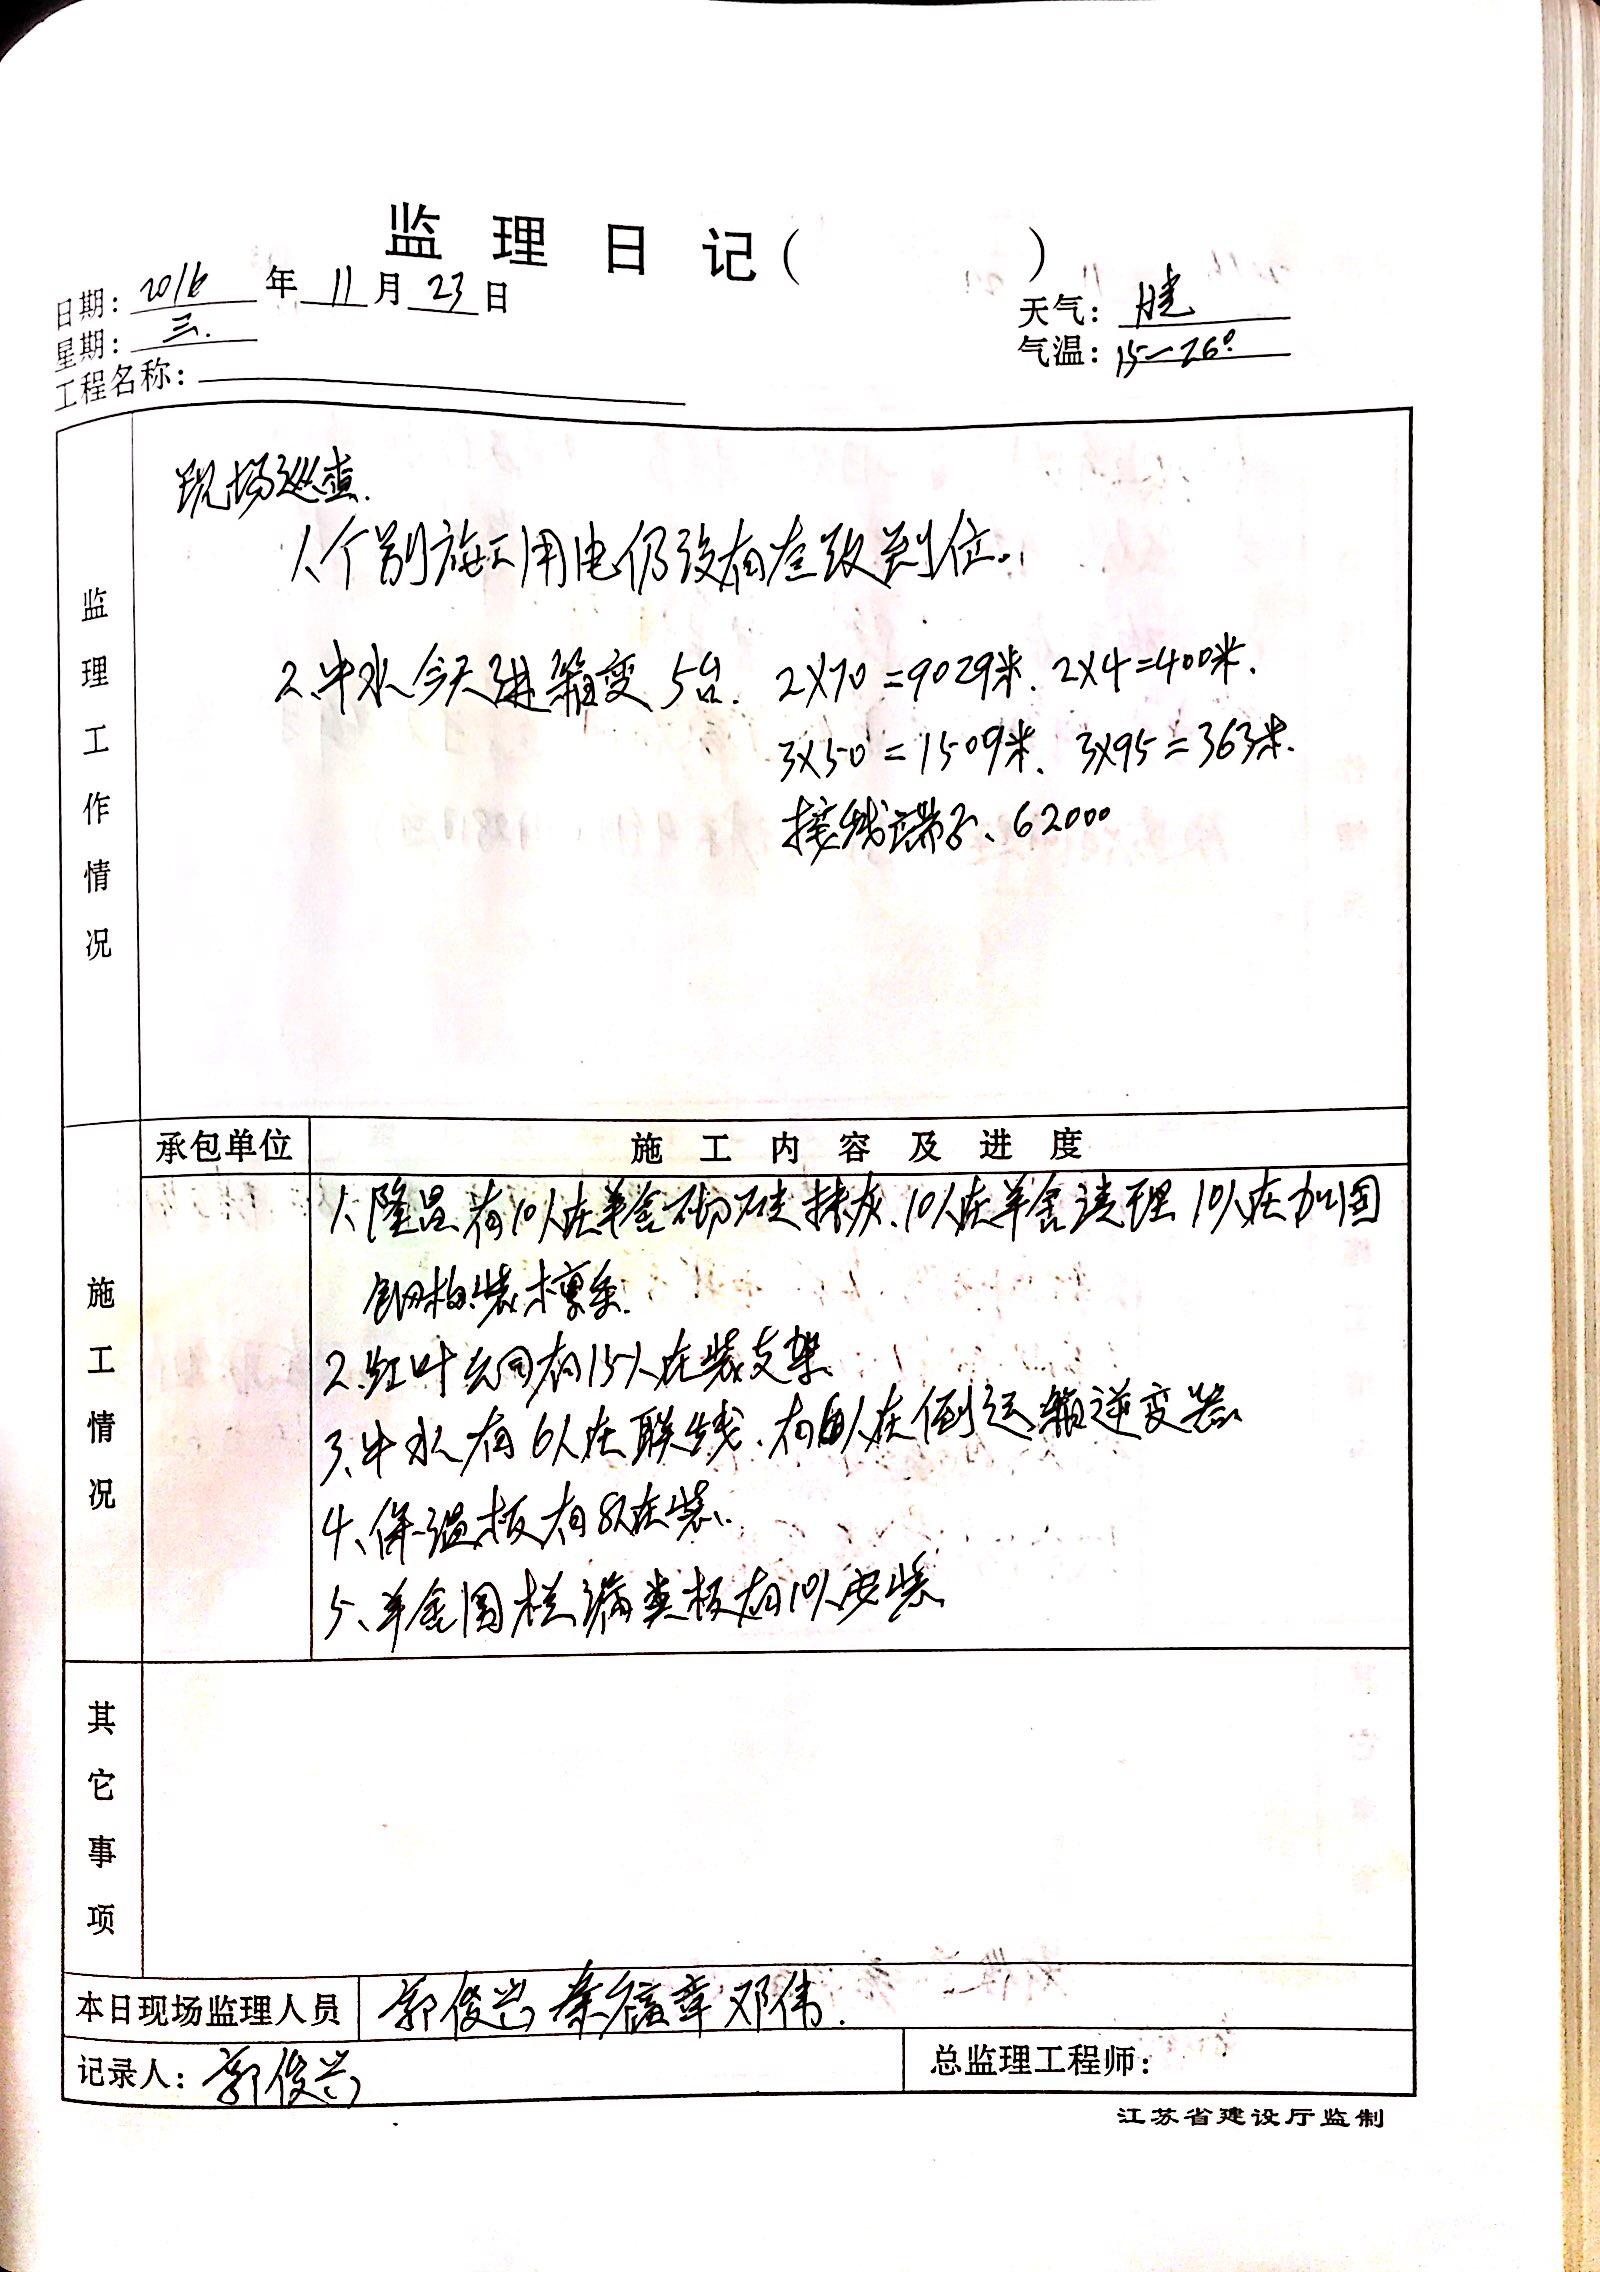 监理日记（ ）
日期：2016年11月23日
天气：晴
星期：三.
气温：15—26°
工程名称：
监理工作情况
现场巡查.
1、个别施工用电仍没有整改到位。
2、中水今天进箱变5台. 2×70=9029米. 2×4=400米.
3×50=1509米. 3×95=363米.
接线端子、62000
承包单位 施工内容及进度
施工情况
1、隆昌有10人在羊舍砌砖抹灰、10人在羊舍清理 10人在加固
钢构装檩条.
2、红叶公司有15人在装支架
3、中水有6人在联线、有6人在倒运箱逆变器
4、保温板有8人在装.
5、羊舍围栏漏粪板有10人安装
其它事项
本日现场监理人员 郭俊岩 秦 章 邓伟.
记录人：郭俊岩 总监理工程师：
江苏省建设厅监制